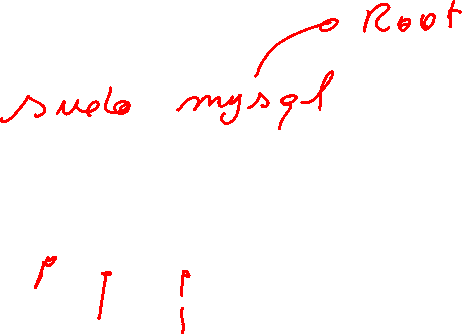 Root
sudo mysql